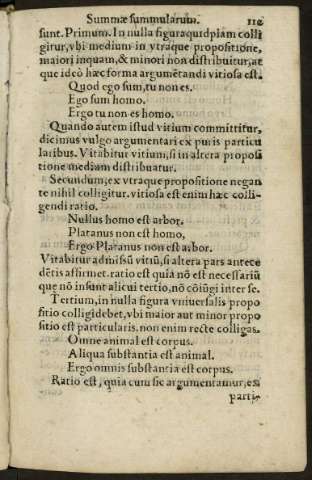 Summæ summularum. 110
sunt. Primum. In nulla figura quidpiam colli
gitur, vbi medium in vtraque propositione,
maiori inquam, & minori non distribuitur, at
que ideò hæc forma argumētandi vitiosa est.
Quod ego sum, tu non es.
Ego sum homo.
Ergo tu non es homo.
Quando autem istud vitium committitur,
dicimus vulgo argumentari ex puris particu
laribus. Vitabitur vitium, si in altera proposi
tione medium distribuatur.
Secundum, ex vtraque propositione negan
te nihil colligitur. vitiosa est enim hæc colli-
gendi ratio.
Nullus homo est arbor.
Platanus non est homo,
Ergo Platanus non est arbor.
Vitabitur admissū vitiū, si altera pars antece
dētis affirmet. ratio est quià nō est necessariū
que nō insunt alicui tertio, nō cōiūgi inter se.
Tertium, in nulla figura vniuersalis propo
sitio colligi debet, vbi maior aut minor propo
sitio est particularis. non enim recte colligas.
Omne animal est corpus.
Aliqua substantia est animal.
Ergo omnis substantia est corpus.
Ratio est, quia cum sic argumentamur, ex
parti-